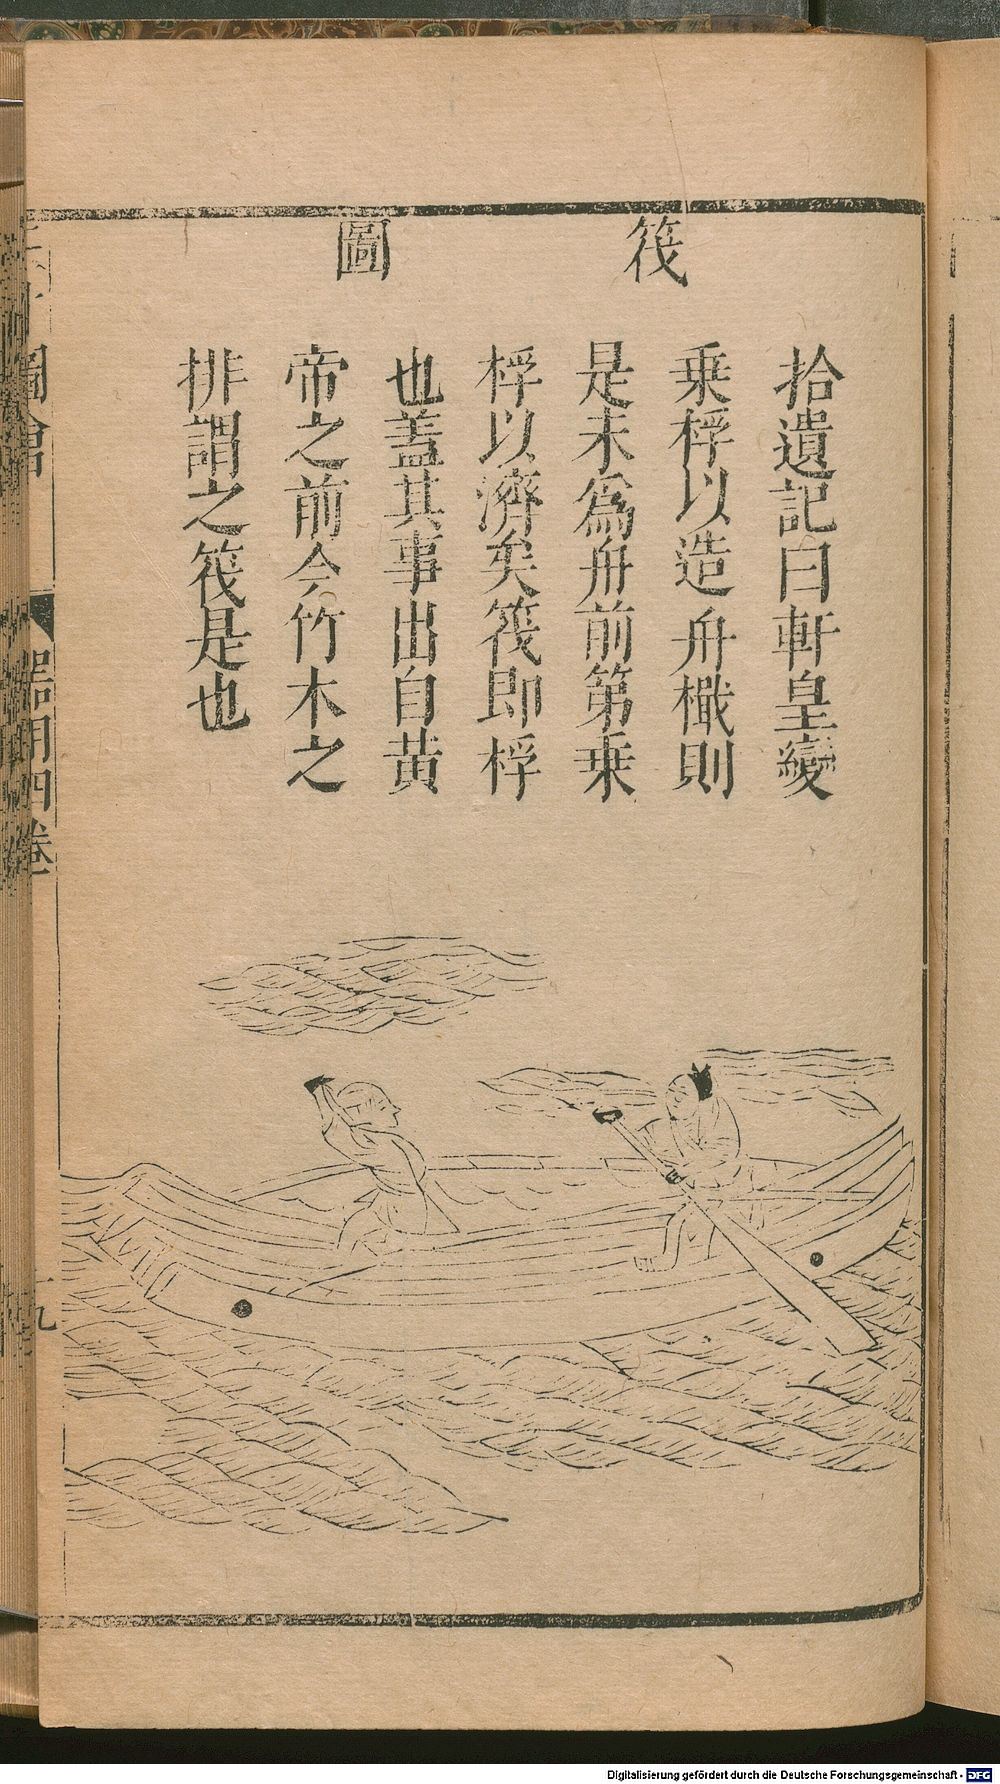 筏圖
拾遺記曰軒皇變
乗桴以造舟檝則
是未為舟前第乗
桴以濟矣筏即桴
也蓋其事出自黃
帝之前今竹木之
排謂之筏是也
圖會
器用四卷
十九
Digitalisierung gefördert durch die Deutsche Forschungsgemeinschaft - DFG